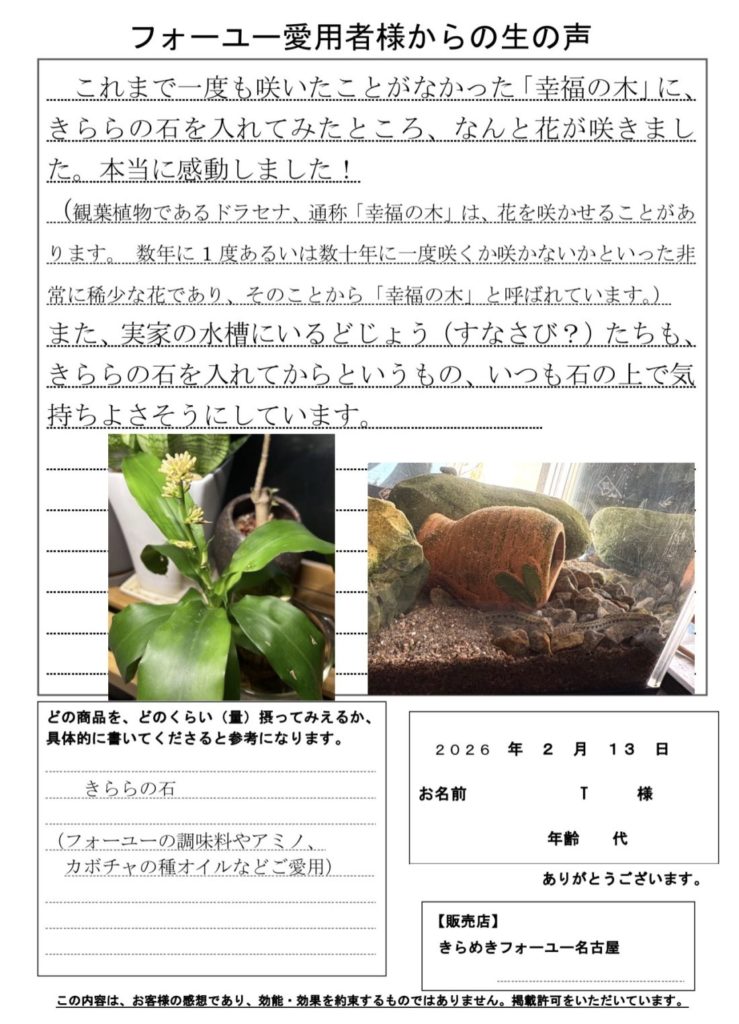 フォーユー愛用者様からの生の声
これまで一度も咲いたことがなかった「幸福の木」に、
きららの石を入れてみたところ、なんと花が咲きまし
た。本当に感動しました！
（観葉植物であるドラセナ、通称「幸福の木」は、花を咲かせることがあ
ります。 数年に１度あるいは数十年に一度咲くか咲かないかといった非
常に稀少な花であり、そのことから「幸福の木」と呼ばれています。）
また、実家の水槽にいるどじょう（すなさび？）たちも、
きららの石を入れてからというもの、いつも石の上で気
持ちよさそうにしています。
どの商品を、どのくらい（量）摂ってみえるか、
具体的に書いてくださると参考になります。
きららの石
（フォーユーの調味料やアミノ、
カボチャの種オイルなどご愛用）
２０２６ 年 ２ 月 １３ 日
お名前 T 様
年齢 代
ありがとうございます。
【販売店】
きらめきフォーユー名古屋
この内容は、お客様の感想であり、効能・効果を約束するものではありません。掲載許可をいただいています。